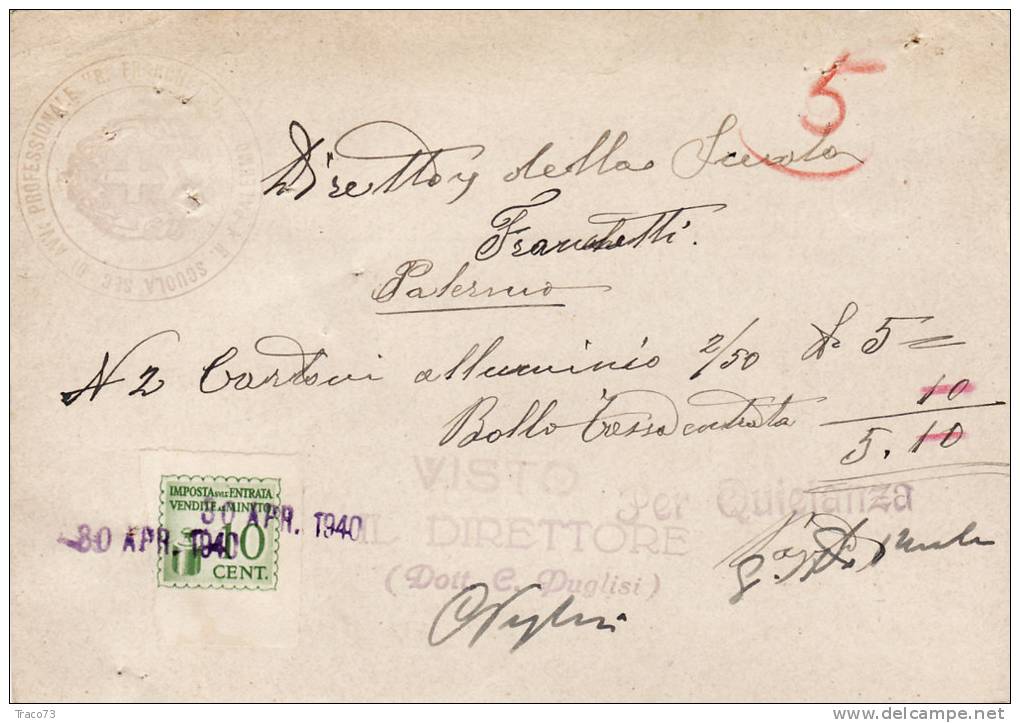 5
R. SCUOLA SEC. DI AVV. PROFESSIONALE
Direttore della Scuola
Franchetti.
Palermo
N 2 Cartoni alluminio 2/50 £ 5=
Bollo Tassa entrata 10
5.10
IMPOSTA SULL'ENTRATA
VENDITE AL MINUTO
10
CENT.
30 APR. 1940
30 APR. 1940
VISTO
IL DIRETTORE
(Dott. C. Puglisi)
Per Quietanza
CPuglisi
Traco73
www.delcampe.net